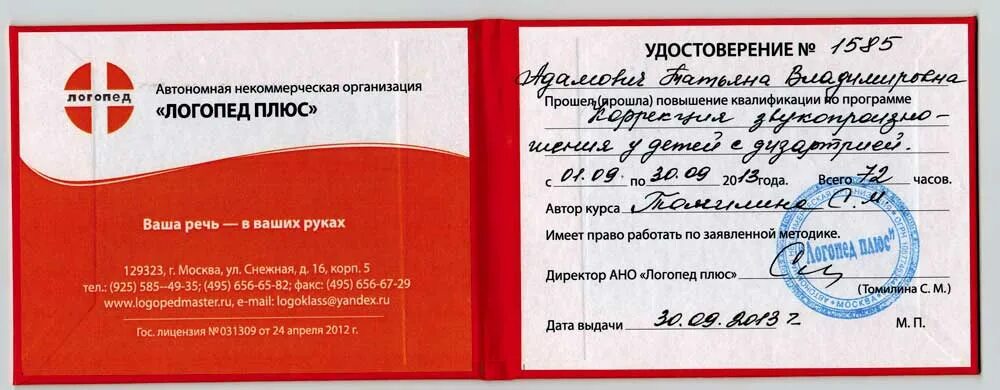 логопед
Автономная некоммерческая организация
«ЛОГОПЕД ПЛЮС»
Ваша речь — в ваших руках
129323, г. Москва, ул. Снежная, д. 16, корп. 5
тел.: (925) 585--49-35; (495) 656-65-82; факс: (495) 656-67-29
www.logopedmaster.ru, e-mail: logoklass@yandex.ru
Гос. лицензия №031309 от 24 апреля 2012 г.
УДОСТОВЕРЕНИЕ № 1585
Адамович Татьяна Владимировна
Прошел (прошла) повышение квалификации по программе
Коррекция звукопроизно-
шения у детей с дизартрией.
с 01.09. по 30.09 2013года. Всего 72 часов.
Автор курса Томилина С. М.
Имеет право работать по заявленной методике.
Директор АНО «Логопед плюс»
(Томилина С. М.)
Дата выдачи 30.09.2013 г М. П.
"Логопед плюс"
МОСКВА